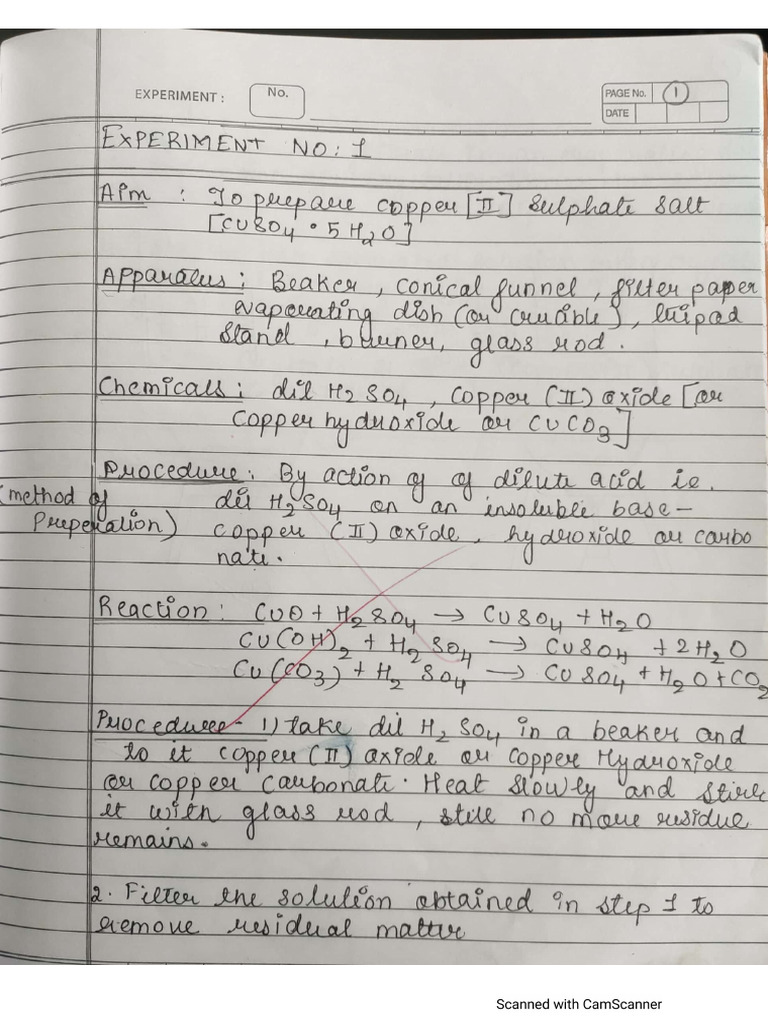 EXPERIMENT : No. PAGE No. 1
DATE
EXPERIMENT NO: 1
Aim : To prepare copper [II] sulphate salt
[CUSO4 • 5H2O]
Apparatus : Beaker , conical funnel , filter paper
evaporating dish (or crucible) , tripad
stand , burner, glass rod .
Chemicals : dil H2SO4 , Copper (II) oxide [or
Copper hydroxide or CUCO3]
Procedure : By action of of dilute acid ie.
(method of dil H2SO4 on an insoluble base-
Preperation) copper (II) oxide , hydroxide or carbo
nate .
Reaction : CUO + H2SO4 → CUSO4 + H2O
CU(OH)2 + H2SO4 → CUSO4 + 2H2O
CU(CO3) + H2 SO4 → CUSO4 + H2O + CO2
Procedure- 1) take dil H2SO4 in a beaker and
to it copper (II) oxide or copper Hydroxide
or copper carbonate . Heat slowly and stire
it with glass rod , still no more residue
remains .
2. Filter the solution obtained in step 1 to
remove residual matter
Scanned with CamScanner